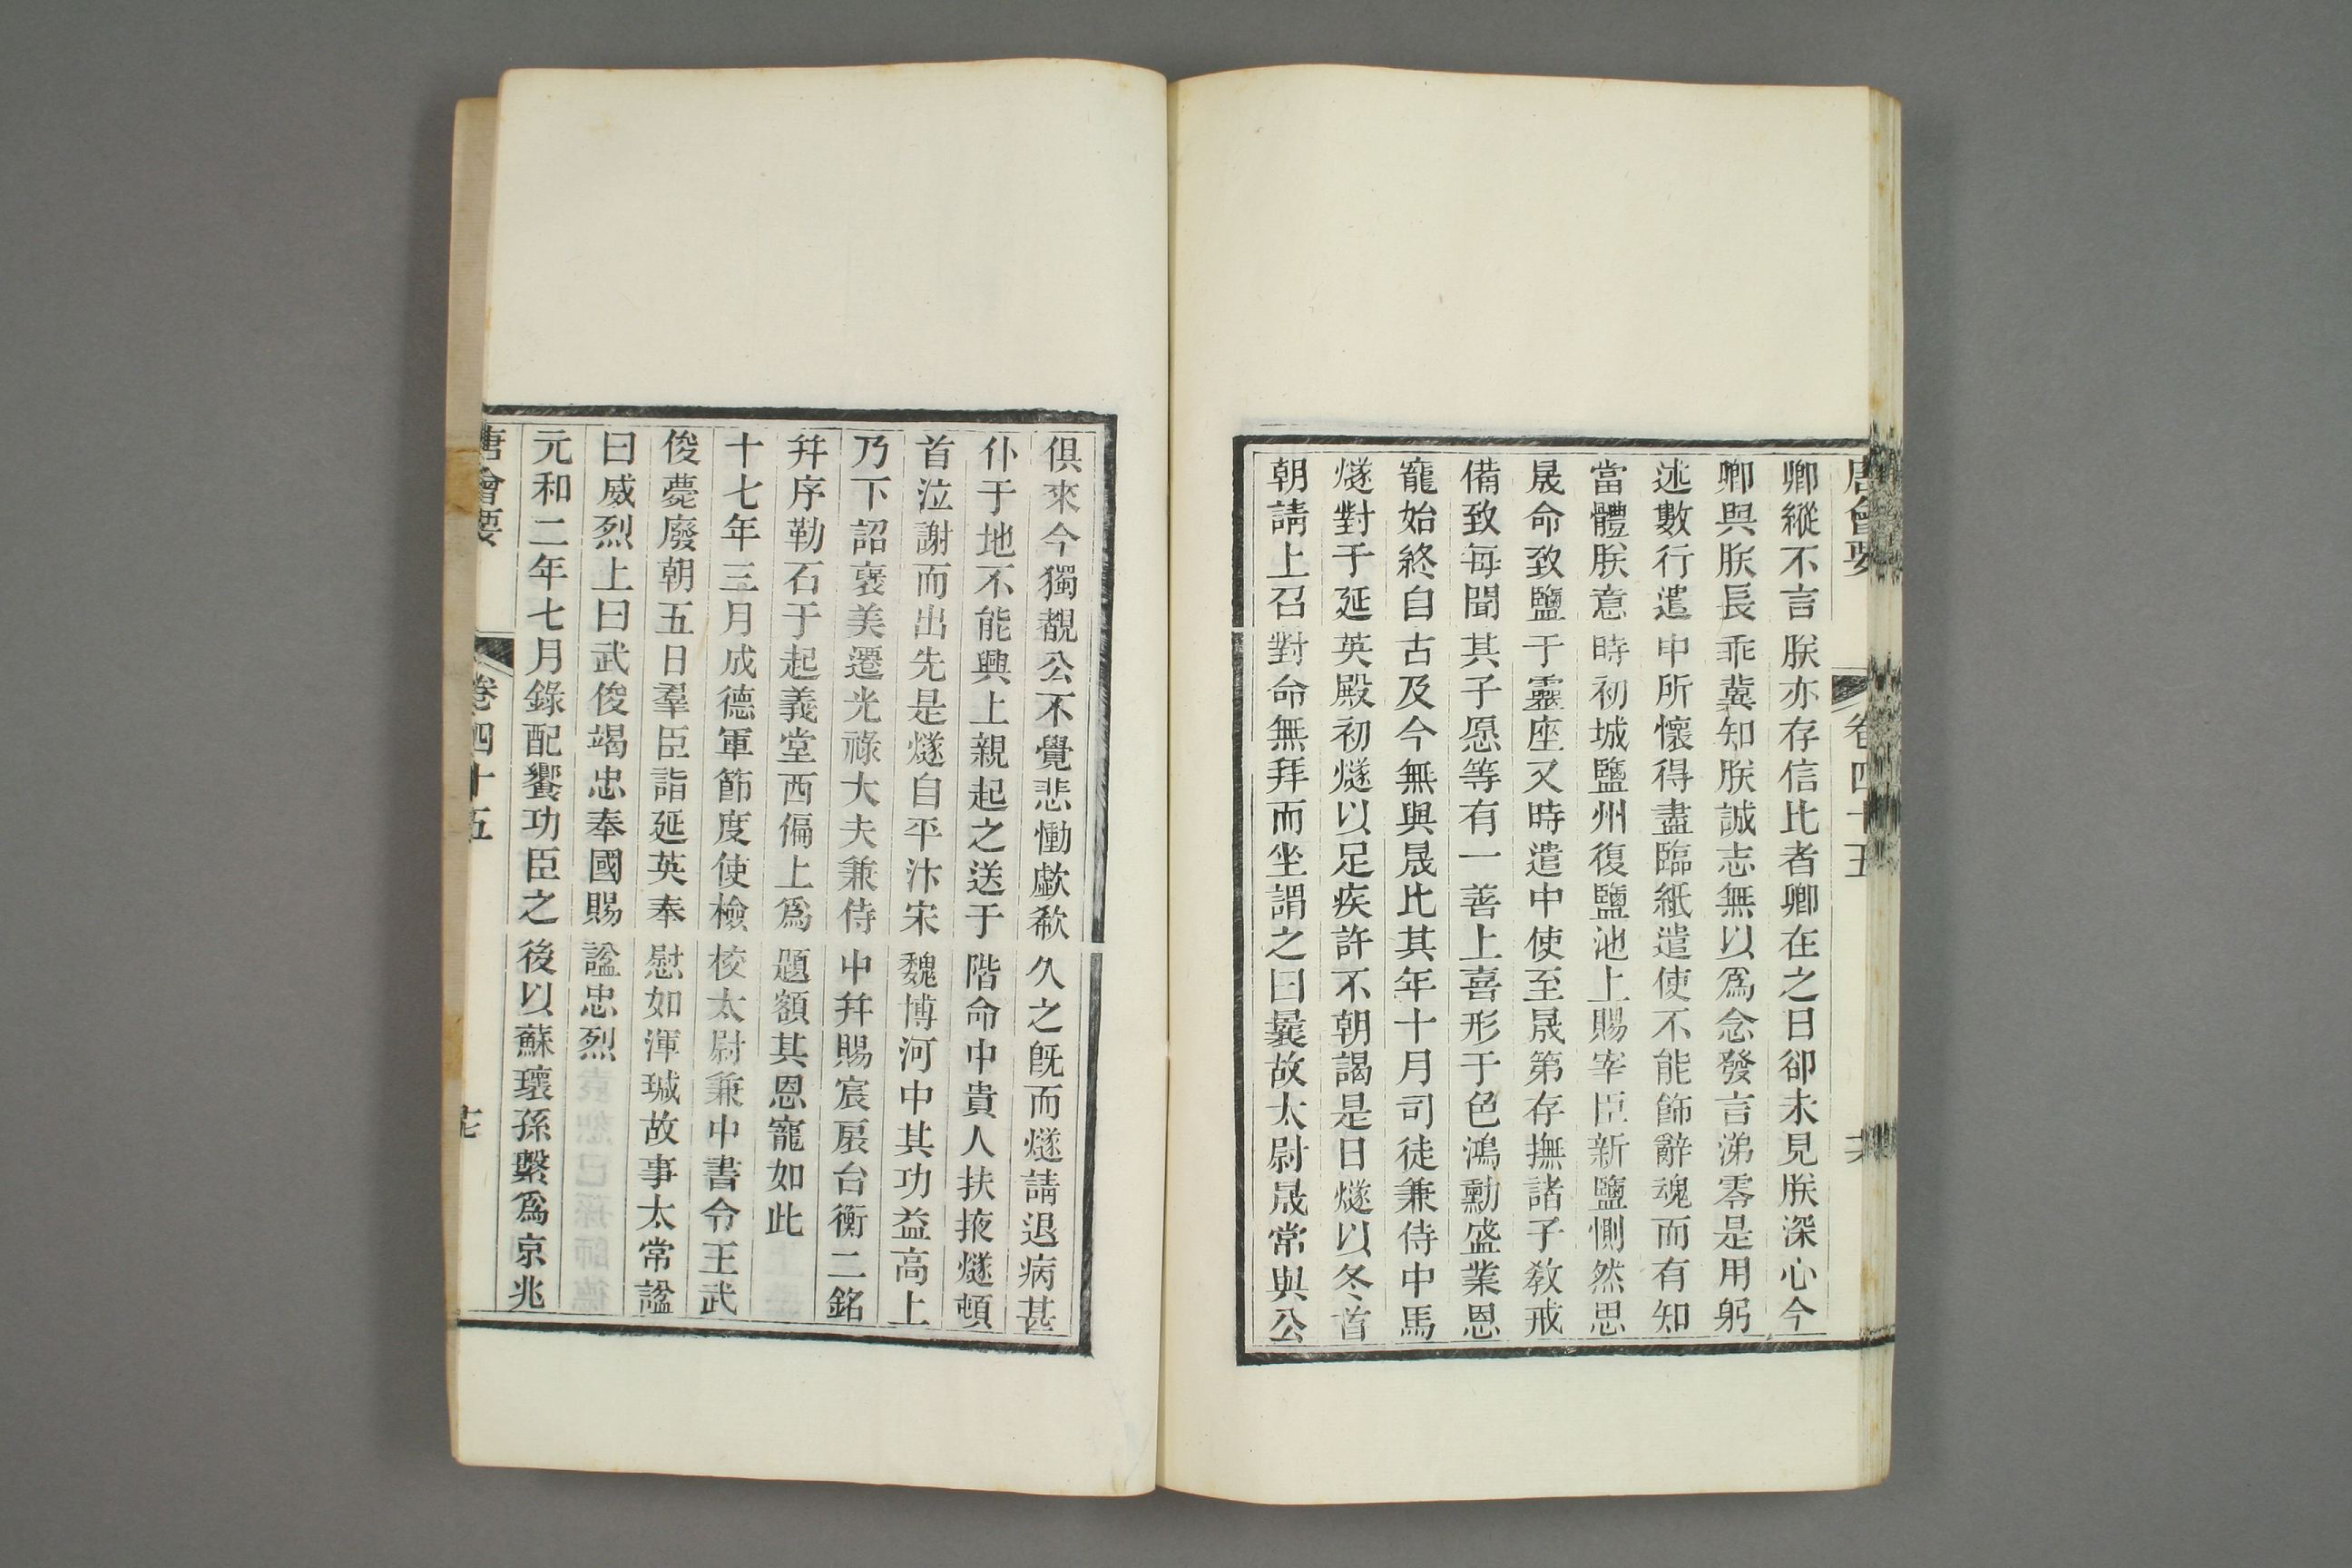 唐會要 卷四十五 十六
卿縱不言朕亦存信比者卿在之日卻未見朕深心今
卿與朕長乖冀知朕誠志無以爲念發言涕零是用躬
述數行遣申所懷得盡臨紙遣使不能飾辭魂而有知
當體朕意時初城鹽州復鹽池上賜宰臣新鹽惻然思
晟命致鹽于靈座又時遣中使至晟第存撫諸子敎戒
備致每聞其子愿等有一善上喜形于色鴻勳盛業恩
寵始終自古及今無與晟比其年十月司徒兼侍中馬
燧對于延英殿初燧以足疾許不朝謁是日燧以冬首
朝請上召對命無拜而坐謂之曰曩故太尉晟常與公
俱來今獨覩公不覺悲慟歔欷久之旣而燧請退病甚
仆于地不能興上親起之送于階命中貴人扶掖燧頓
首泣謝而出先是燧自平汴宋魏博河中其功益高上
乃下詔襃美遷光祿大夫兼侍中幷賜宸扆台衡二銘
幷序勒石于起義堂西偏上爲題額其恩寵如此
十七年三月成德軍節度使檢校太尉兼中書令王武
俊薨廢朝五日羣臣詣延英奉慰如渾瑊故事太常諡
曰威烈上曰武俊竭忠奉國賜諡忠烈
元和二年七月錄配饗功臣之後以蘇瓌孫繫爲京兆
唐會要 卷四十五 十七